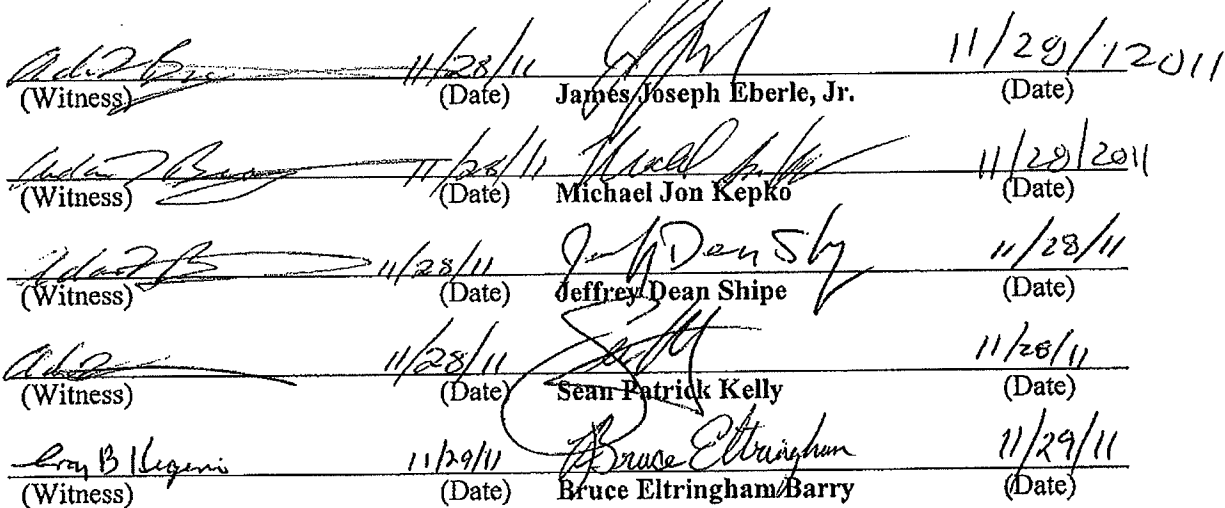 11/28/11 11/28/12011
(Witness) (Date) James Joseph Eberle, Jr. (Date)
11/28/11 11/28/2011
(Witness) (Date) Michael Jon Kepko (Date)
11/28/11 11/28/11
(Witness) (Date) Jeffrey Dean Shipe (Date)
11/28/11 11/28/11
(Witness) (Date) Sean Patrick Kelly (Date)
11/29/11 Bruce Eltringham 11/29/11
(Witness) (Date) Bruce Eltringham Barry (Date)